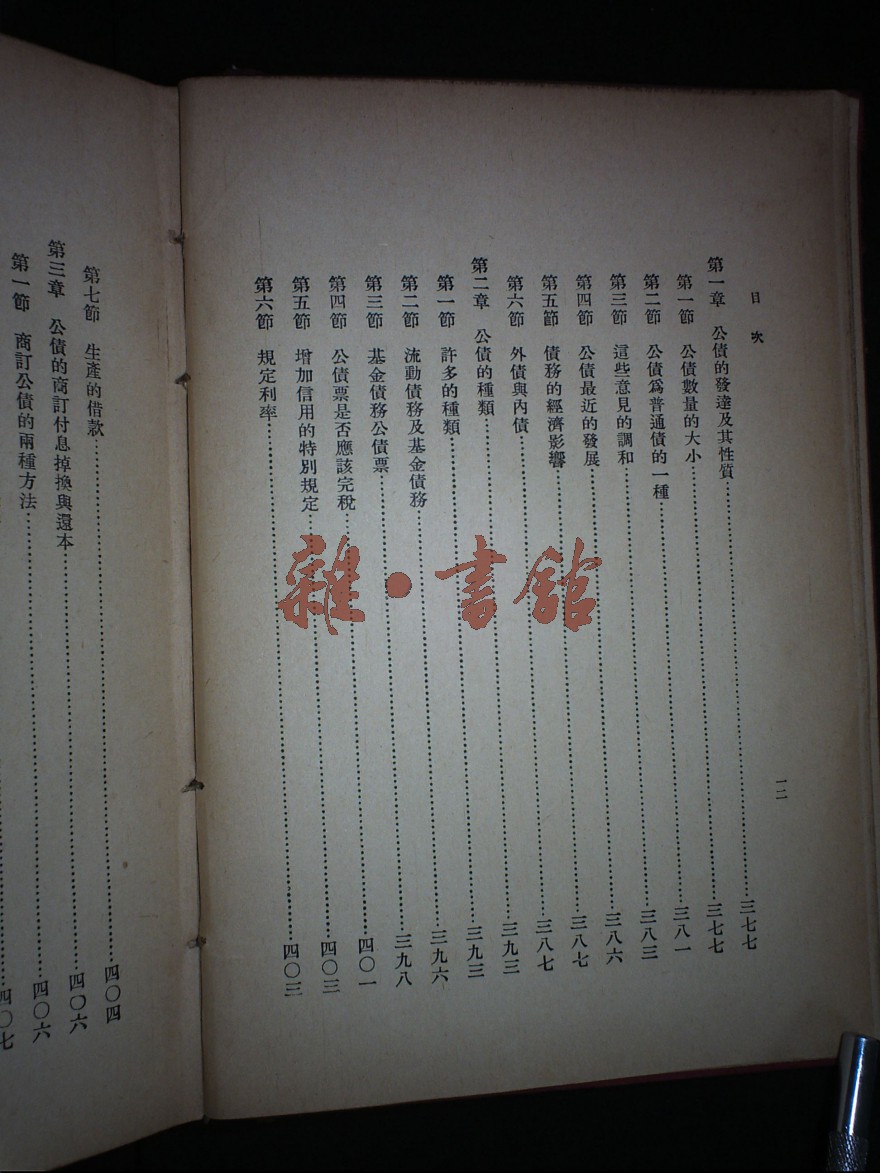 目次
一二
第一章 公債的發達及其性質……三七七
第一節 公債數量的大小……三七七
第二節 公債爲普通債的一種……三八一
第三節 這些意見的調和……三八三
第四節 公債最近的發展……三八六
第五節 債務的經濟影響……三八七
第六節 外債與內債……三八七
第二章 公債的種類……三九三
第一節 許多的種類……三九三
第二節 流動債務及基金債務……三九六
第三節 基金債務公債票……三九八
第四節 公債票是否應該完稅……四〇一
第五節 增加信用的特別規定……四〇三
第六節 規定利率……四〇三
第七節 生產的借款……四〇四
第三章 公債的商訂付息掉換與還本……四〇六
第一節 商訂公債的兩種方法……四〇六
四〇七
雜·書館